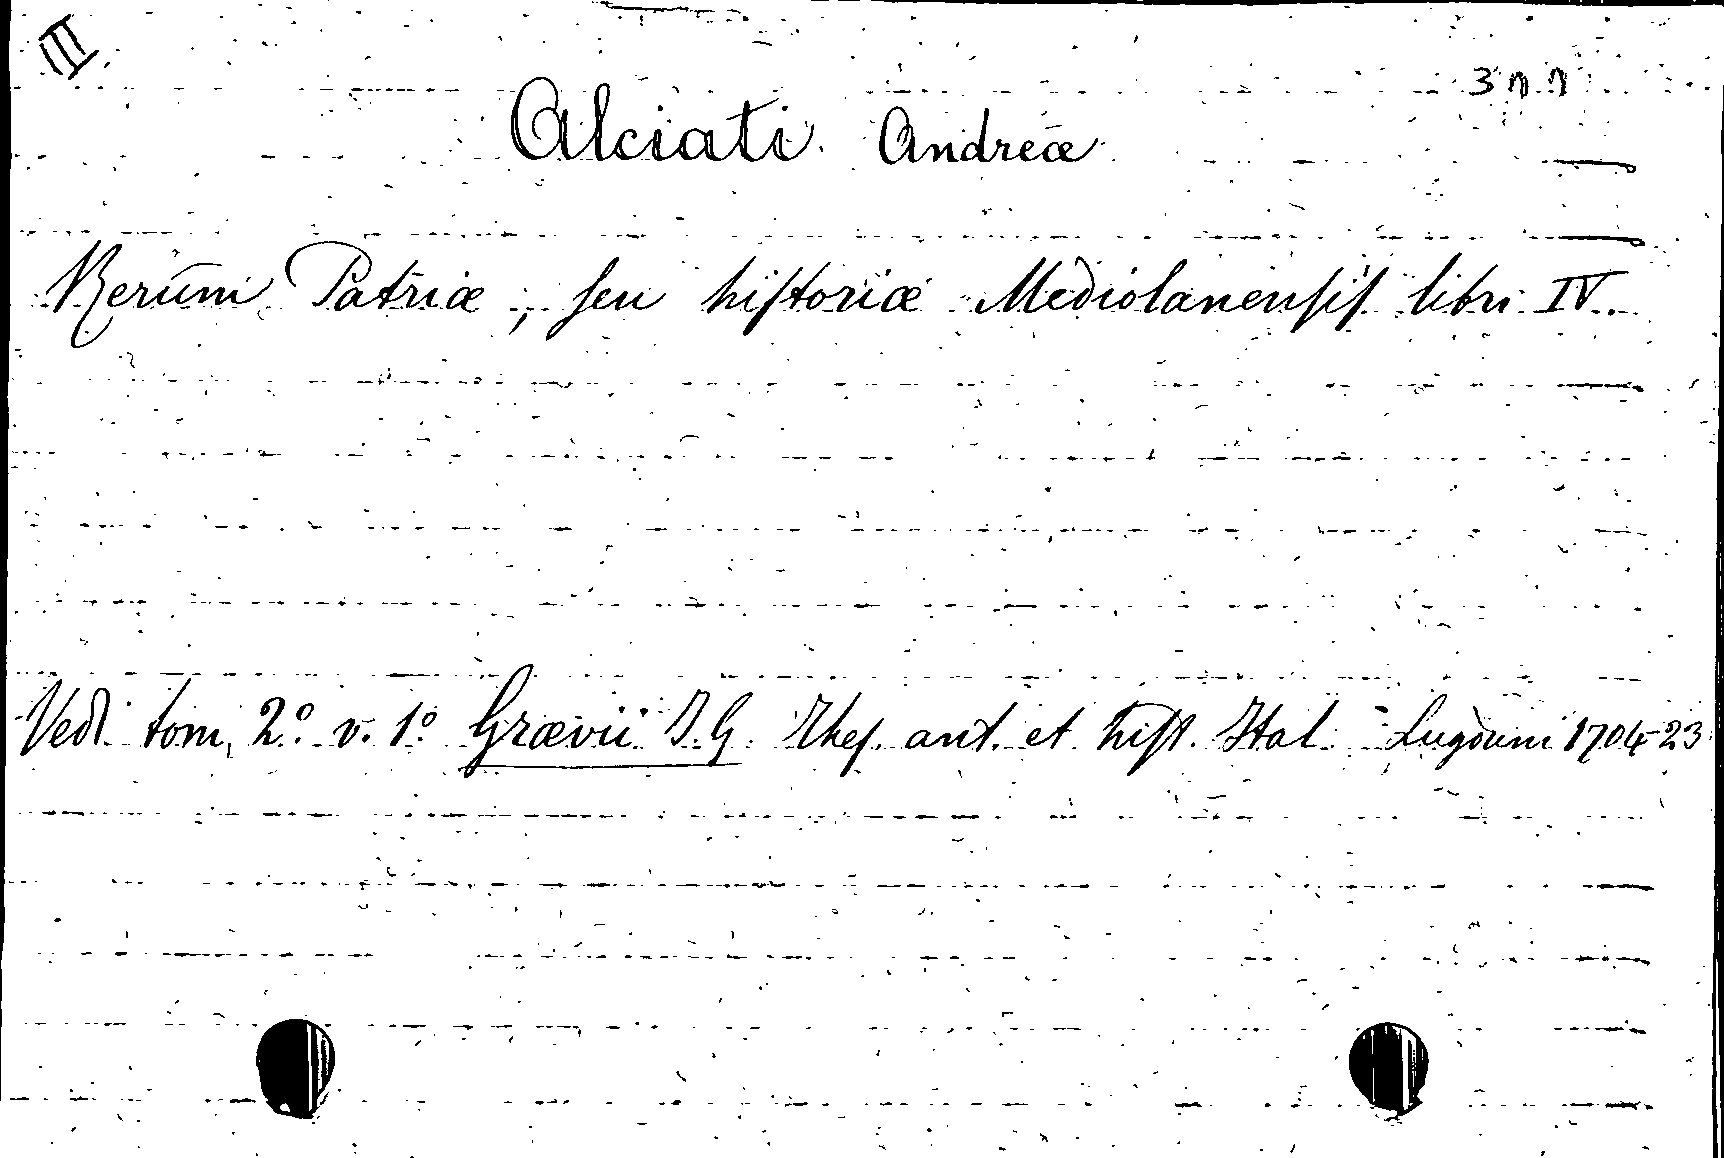 III
Alciati Andreæ
Rerum Patriæ, ſeu hiſtoriæ Mediolanenſiſ libri IV.
Vedi tom. 2º v. 1º Grævii I. G. Theſ. ant. et hiſt. Ital. Lugduni 1704-23